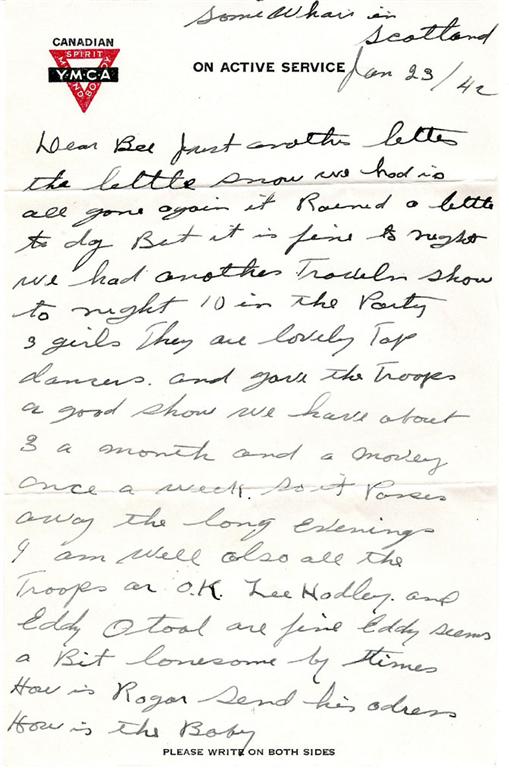 Some Whair in
Scotland
CANADIAN
SPIRIT
Y·M·C·A
MIND
BODY
ON ACTIVE SERVICE
Jan 23/42
Dear Bee just another letter
the little snow we had is
all gone again it Rained a little
to day But it is fine to night
we had another Traveln show
to night 10 in the Party
3 girls They are lovely Tap
dancers. and gave the Troops
a good show we have about
3 a month and a Movey
once a week. so it Passes
away the long Evenings
I am well also all the
Troops ar O.K. Lee Hadley. and
Eddy Otool are fine Eddy seems
a Bit lonesome by times
How is Rogar send his adress
How is the Baby
PLEASE WRITE ON BOTH SIDES